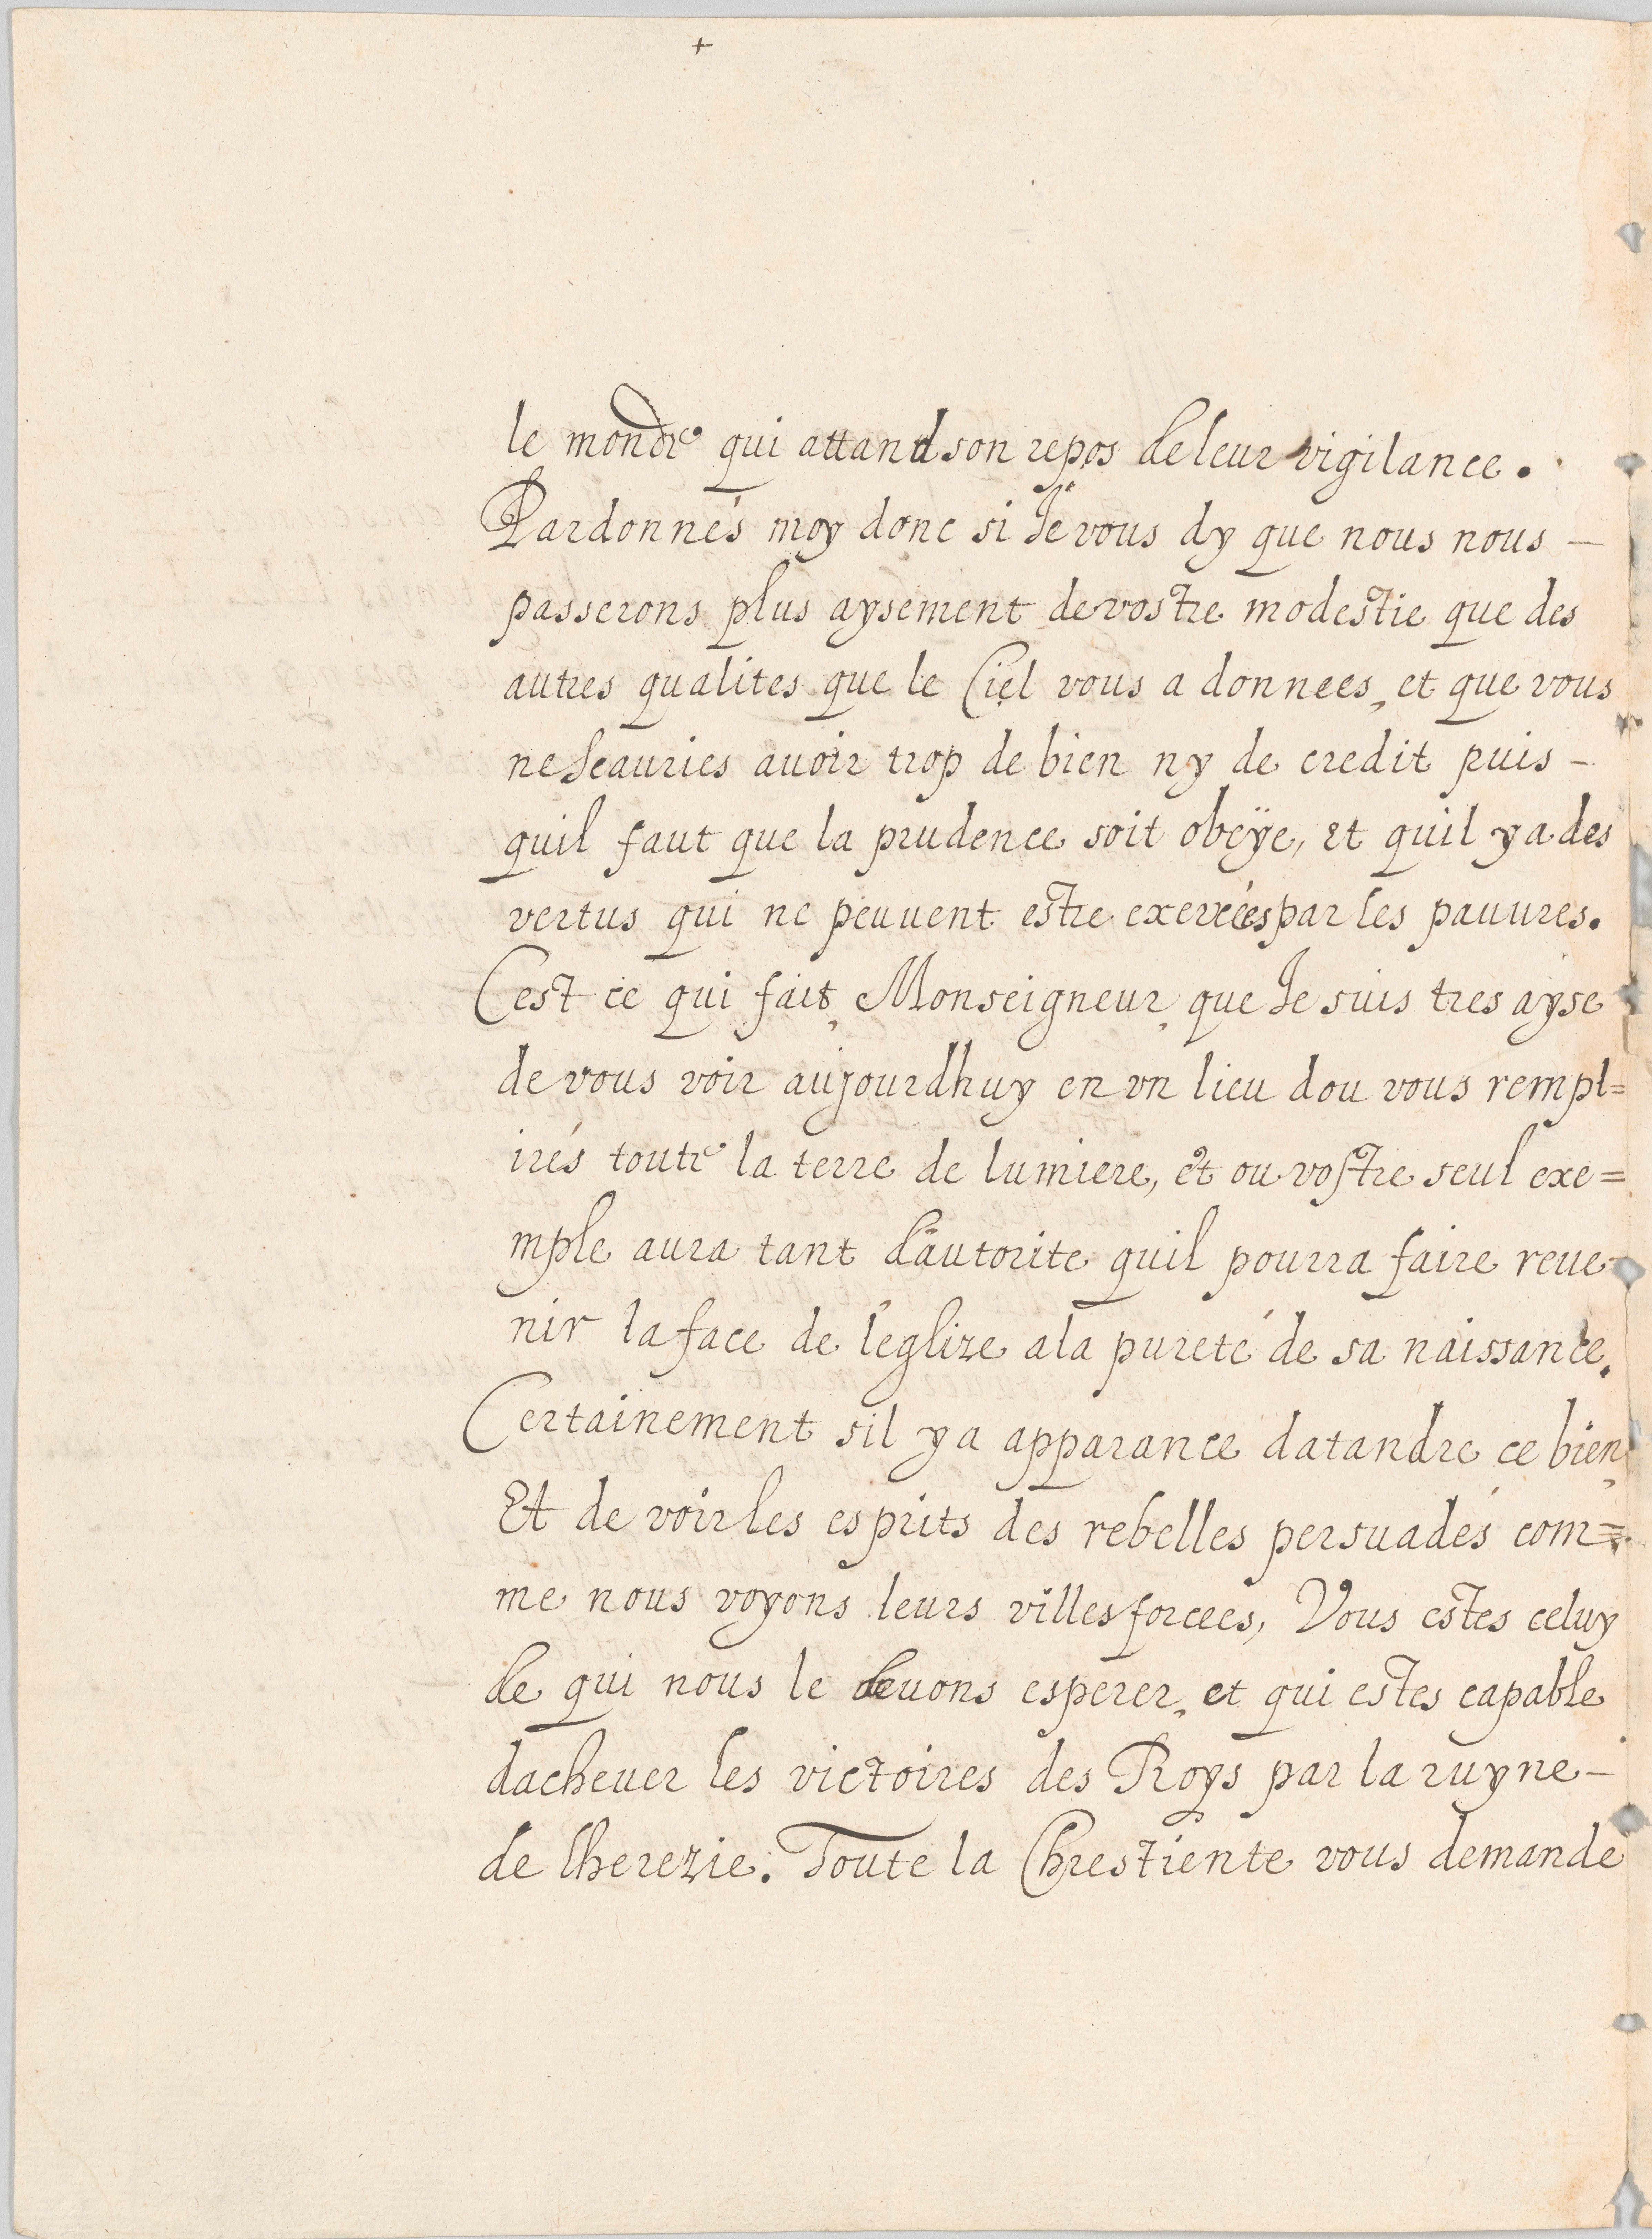 +
le monde qui attand son repos de leur vigilance.
Pardonnés moy donc si Je vous dy que nous nous —
passerons plus aysement de vostre modestie que des
autres qualites que le Ciel vous a donnees, et que vous
ne scauries auoir trop de bien ny de credit puis -
quil faut que la prudence soit obeÿe, et quil y a des
vertus qui ne peuuent estre exercées par les pauures.
Cest ce qui fait, Monseigneur, que Je suis tres ayse
de vous voir aujourdhuy en vn lieu dou vous rempl=
irés toute la terre de lumiere, et ou vostre seul exe=
mple aura tant d'autorite quil pourra faire reue-
nir la face de l'eglize a la pureté de sa naissance.
Certainement sil y a apparance datandre ce bien,
Et de voir les esprits des rebelles persuadés com=
me nous voyons leurs villes forcees, Vous estes celuy
de qui nous le deuons esperer, et qui estes capable
dacheuer les victoires des Roys par la ruyne -
de lherezie. Toute la Chrestiente vous demande